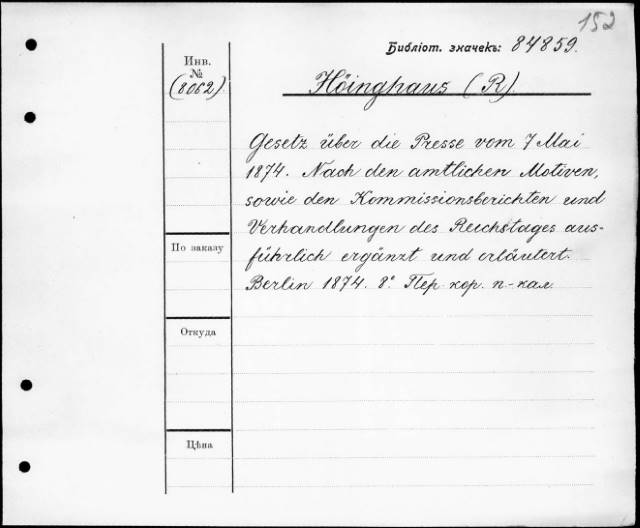 152
Библіот. значекъ: 84859.
Инв.
№
(8062)
Höinghaus (R)
Gesetz über die Presse vom 7 Mai
1874. Nach den amtlichen Motiven,
sowie den Kommissionsberichten und
Verhandlungen des Reichstages aus-
führlich ergänzt und erläutert.
Berlin 1874. 8° Пер кор. п-кал.
По заказу
Откуда
Цѣна